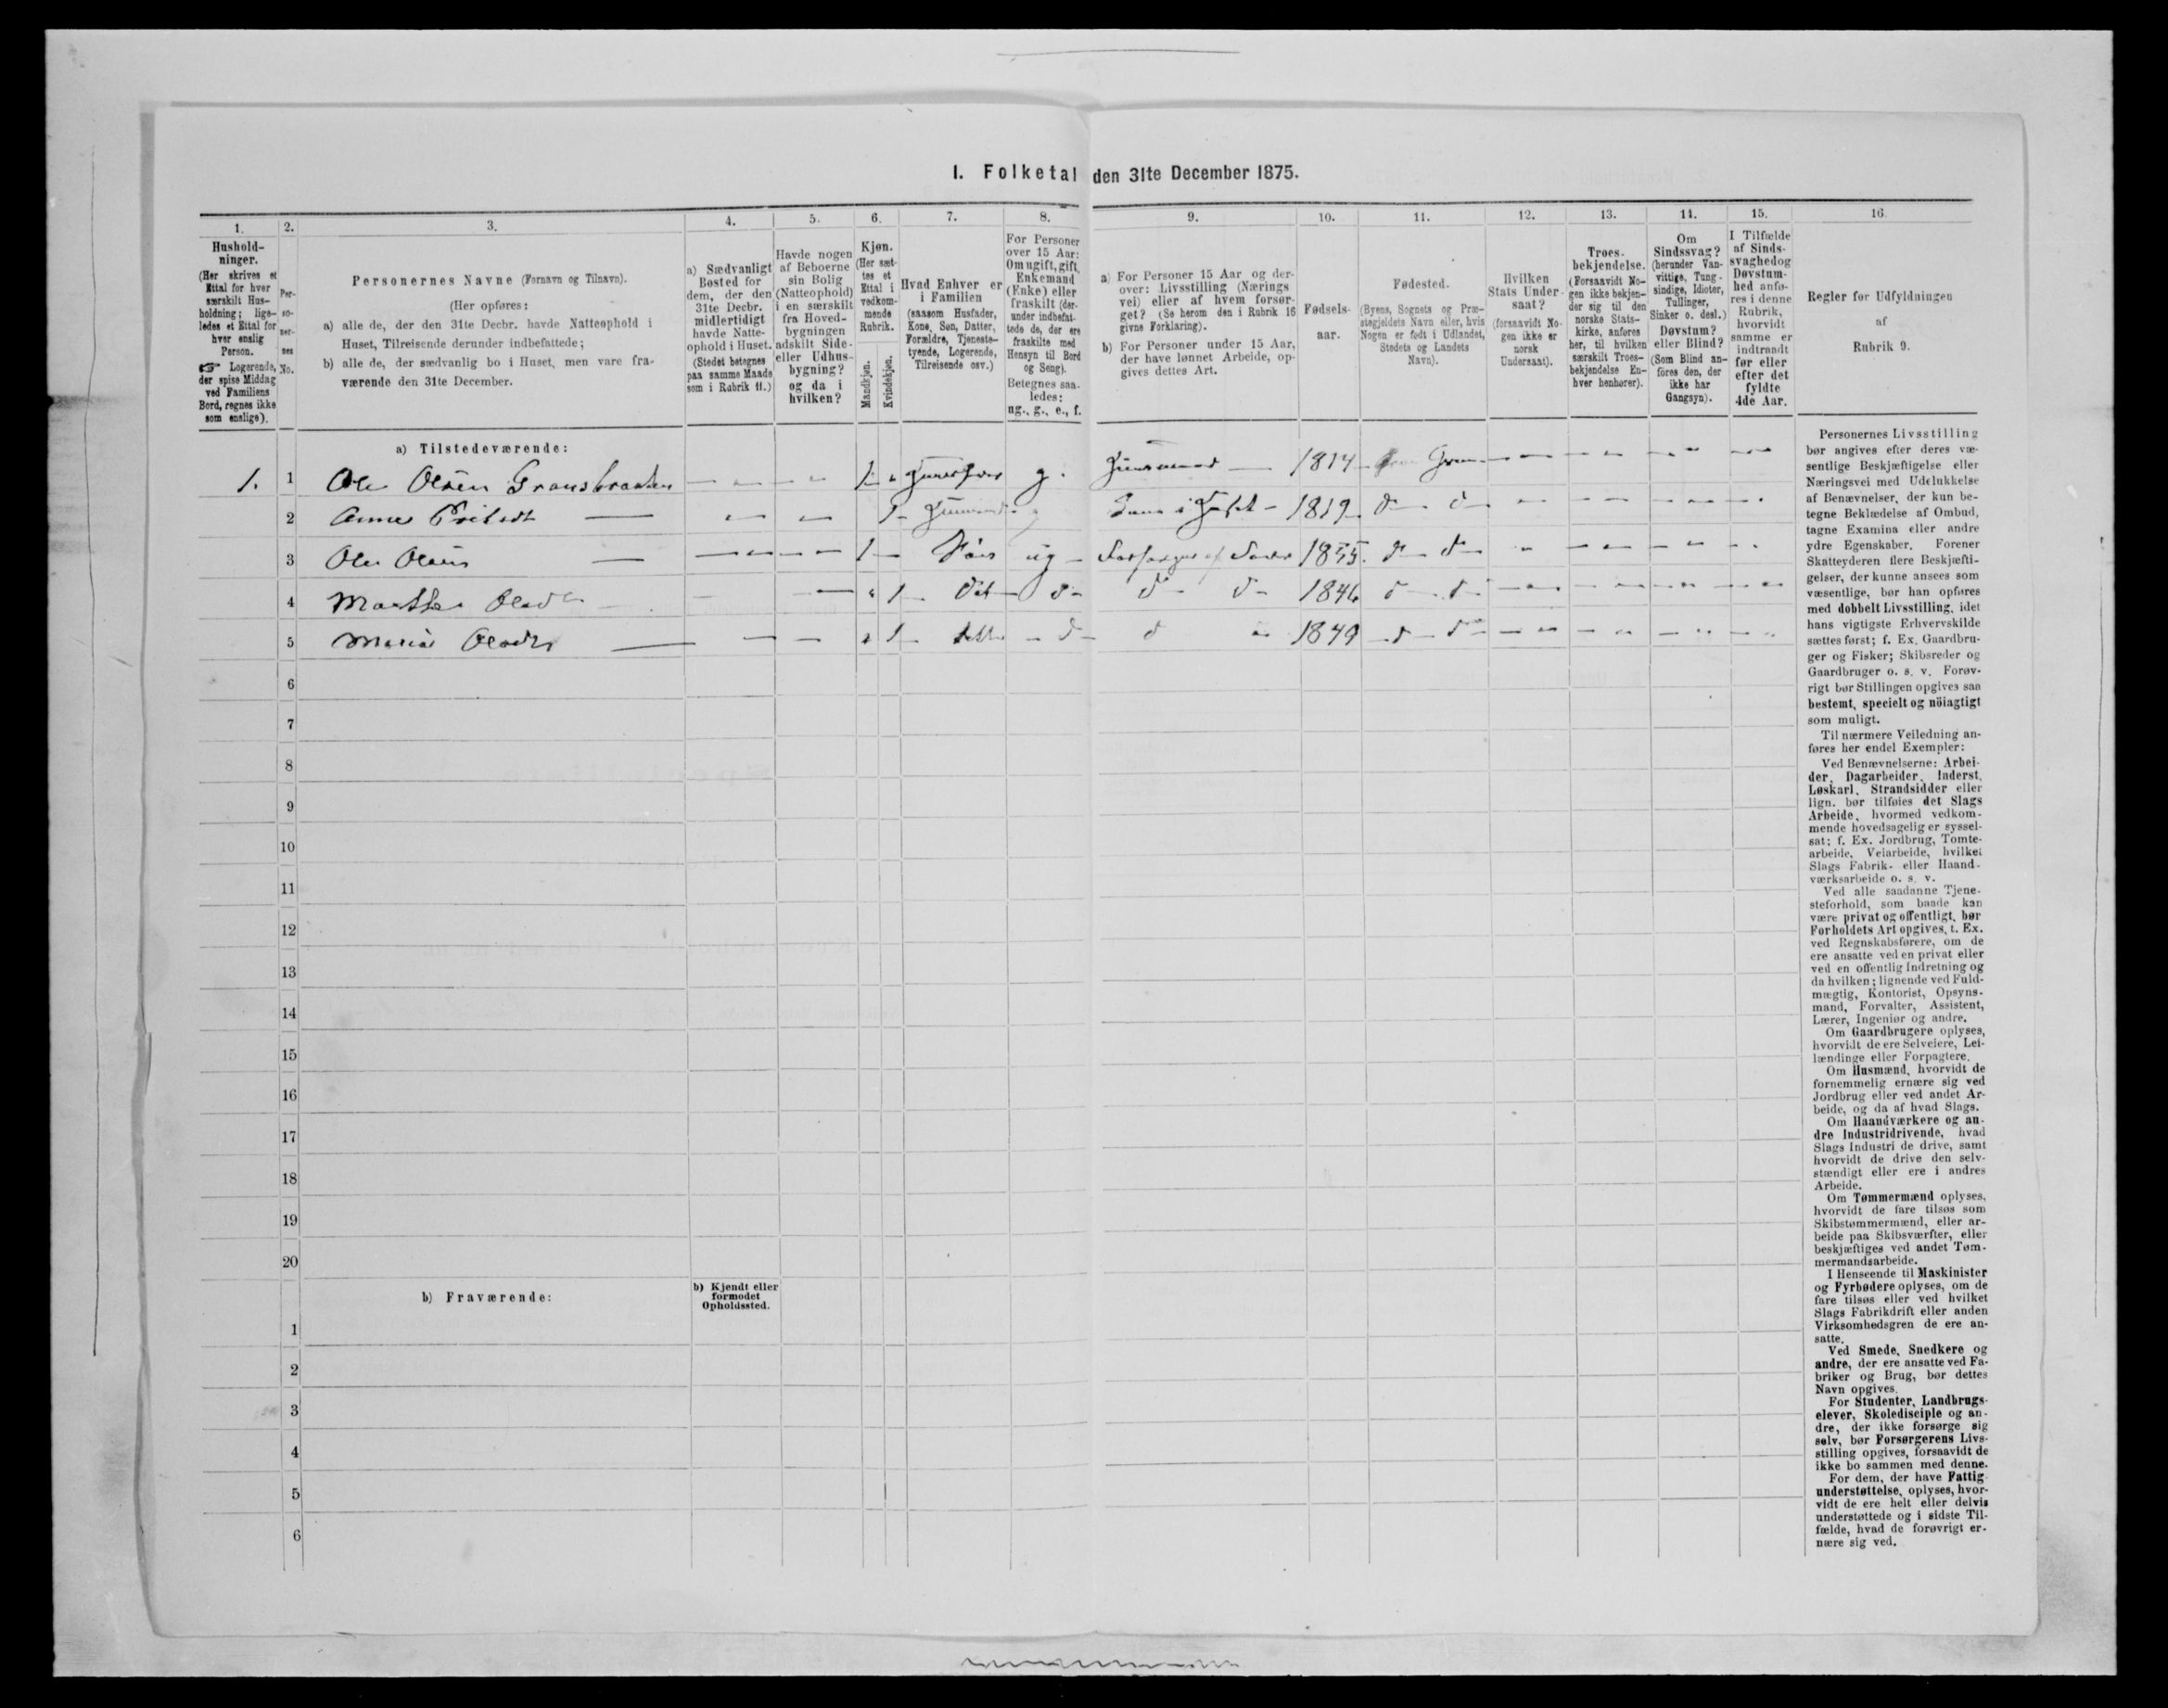 I. Folketal den 31te December 1875.
1.
Hushold-
ninger.
(Her skrives et
Ettal for hver
særskilt Hus-
holdning; lige-
ledes et Ettal for
hver enslig
Person.
☞ Logerende,
der spise Middag
ved Familiens
Bord, regnes ikke
som enslige).
2.
Per-
so-
ner-
nes
No.
3.
Personernes Navne (Fornavn og Tilnavn).
(Her opføres:
a) alle de, der den 31te Decbr. havde Natteophold i
Huset, Tilreisende derunder indbefattede;
b) alle de, der sædvanlig bo i Huset, men vare fra-
værende den 31te December.
4.
a) Sædvanligt
Bosted for
dem, der den
31te Decbr.
midlertidigt
havde Natte-
ophold i Huset.
(Stedet betegnes
paa samme Maade
som i Rubrik 11.)
5.
Havde nogen
af Beboerne
sin Bolig
(Natteophold)
i en særskilt
fra Hoved-
bygningen
adskilt Side-
eller Udhus-
bygning?
og da i
hvilken?
6.
Kjøn.
(Her sæt-
tes et
Ettal i
vedkom-
mende
Rubrik.
Mandkjøn.
Kvindekjøn.
7.
Hvad Enhver er
i Familien
(saasom Husfader,
Kone, Søn, Datter,
Forældre, Tjeneste-
tyende, Logerende,
Tilreisende osv.)
8.
For Personer
over 15 Aar:
Om ugift, gift,
Enkemand
(Enke) eller
fraskilt (der-
under indbefat-
tede de, der ere
fraskilte med
Hensyn til Bord
og Seng).
Betegnes saa-
ledes:
ug., g., e., f.
9.
a) For Personer 15 Aar og der-
over: Livsstilling (Nærings
vei) eller af hvem forsør-
get? (Se herom den i Rubrik 16
givne Forklaring).
b) For Personer under 15 Aar,
der have lønnet Arbeide, op-
gives dettes Art.
10.
Fødsels-
aar.
11.
Fødested.
(Byens, Sognets og Præ-
stegjeldets Navn eller, hvis
Nogen er født i Udlandet,
Stedets og Landets
Navn).
12.
Hvilken
Stats Under-
saat?
(forsaavidt No-
gen ikke er
norsk
Undersaat).
13.
Troes-
bekjendelse.
(Forsaavidt No-
gen ikke bekjen-
der sig til den
norske Stats-
kirke, anføres
her, til hvilken
særskilt Troes-
bekjendelse En-
hver henhører).
14.
Om
Sindssvag?
(herunder Van-
vittige, Tung-
sindige, Idioter,
Tullinger,
Sinker o. desl.)
Døvstum?
eller Blind?
(Som Blind an-
føres den, der
ikke har
Gangsyn).
15.
I Tilfælde
af Sinds-
svaghed og
Døvstum-
hed anfø-
res i denne
Rubrik,
hvorvidt
samme er
indtraadt
før eller
efter det
fyldte
4de Aar.
16.
Regler for Udfyldningen
af
Rubrik 9.
a) Tilstedeværende:
1. 1 Ole Olsen Gransbraaten 1 g. Husmand 1814 Gran
2 Anne 1 g 1819 d d
3 Ole Olsen 1 Søn ug Forsørges af Fader 1855 d d
4 Marthe Olsd 1 Dat d d d 1846 d d
5 Maria Olsdtr 1 Datter d d 1849 d d
6
7
8
9
10
11
12
13
14
15
16
17
18
19
20
b) Fraværende:
b) Kjendt eller
formodet
Opholdssted.
1
2
3
4
5
6
Personernes Livsstilling
bør angives efter deres væ-
sentlige Beskjæftigelse eller
Næringsvei med Udelukkelse
af Benævnelser, der kun be-
tegne Beklædelse af Ombud,
tagne Examina eller andre
ydre Egenskaber. Forener
Skatteyderen flere Beskjæfti-
gelser, der kunne ansees som
væsentlige, bør han opføres
med dobbelt Livsstilling, idet
hans vigtigste Erhvervskilde
sættes først; f. Ex. Gaardbru-
ger og Fisker; Skibsreder og
Gaardbruger o. s. v. Forøv-
rigt bør Stillingen opgives saa
bestemt, specielt og nöiagtigt
som muligt.
Til nærmere Veiledning an-
føres her endel Exempler:
Ved Benævnelserne: Arbei-
der, Dagarbeider, Inderst,
Løskarl, Strandsidder eller
lign. bør tilføies det Slags
Arbeide, hvormed vedkom-
mende hovedsagelig er syssel-
sat; f. Ex. Jordbrug, Tomte-
arbeide, Veiarbeide, hvilket
Slags Fabrik- eller Haand-
værksarbeide o. s. v.
Ved alle saadanne Tjene-
steforhold, som baade kan
være privat og offentligt, bør
Forholdets Art opgives, t. Ex.
ved Regnskabsførere, om de
ere ansatte ved en privat eller
ved en offentlig Indretning og
da hvilken; lignende ved Fuld-
mægtig, Kontorist, Opsyns-
mand, Forvalter, Assistent,
Lærer, Ingeniør og andre.
Om Gaardbrugere oplyses,
hvorvidt de ere Selveiere, Lei-
lændinge eller Forpagtere.
Om Husmænd, hvorvidt de
fornemmelig ernære sig ved
Jordbrug eller ved andet Ar-
beide, og da af hvad Slags.
Om Haandværkere og an-
dre Industridrivende, hvad
Slags Industri de drive, samt
hvorvidt de drive den selv-
stændigt eller ere i andres
Arbeide.
Om Tømmermænd oplyses,
hvorvidt de fare tilsøs som
Skibstømmermænd, eller ar-
beide paa Skibsværfter, eller
beskjæftiges ved andet Tøm-
mermandsarbeide.
I Henseende til Maskinister
og Fyrbødere oplyses, om de
fare tilsøs eller ved hvilket
Slags Fabrikdrift eller anden
Virksomhedsgren de ere an-
satte.
Ved Smede, Snedkere og
andre, der ere ansatte ved Fa-
briker og Brug, bør dettes
Navn opgives.
For Studenter, Landbrugs-
elever, Skoledisciple og an-
dre, der ikke forsørge sig
selv, bør Forsørgerens Livs-
stilling opgives, forsaavidt de
ikke bo sammen med denne.
For dem, der have Fattig-
understøttelse, oplyses, hvor-
vidt de ere helt eller delvis
understøttede og i sidste Til-
fælde, hvad de forøvrigt er-
nære sig ved.